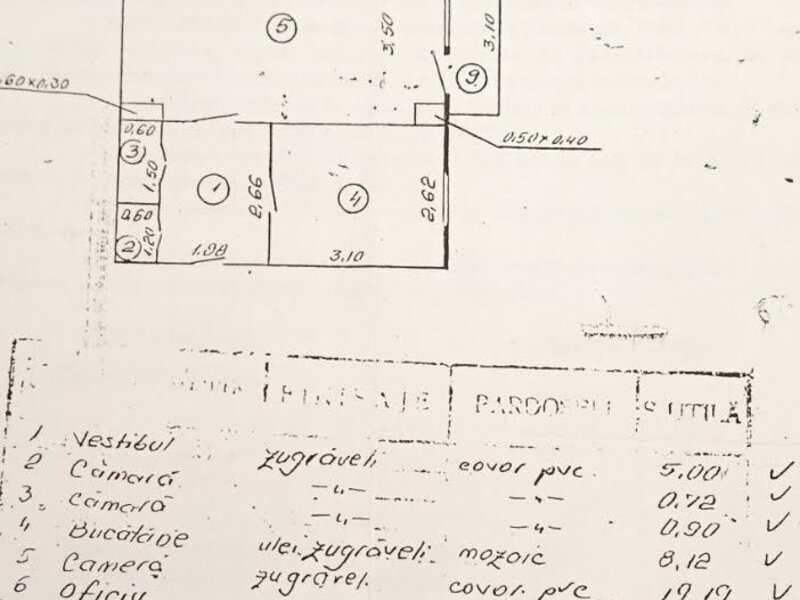 5
3,50
3,10
9
,60x0.30
0,60
3
1,50
0,50x0,40
1
2,66
4
2,62
0,60
2
1,20
1.98
3.10
FINISAJE PARDOSELI S UTILĂ
1 Vestibul zugrăveli covor pvc 5,00 ✓
2 Cămară —〃— —〃— 0,72 ✓
3 Cămară —〃— —〃— 0,90 ✓
4 Bucătărie ulei. zugrăveli. mozaic 8,12 ✓
5 Cameră zugrăvel. covor pvc 19,19 ✓
6 Oficiu